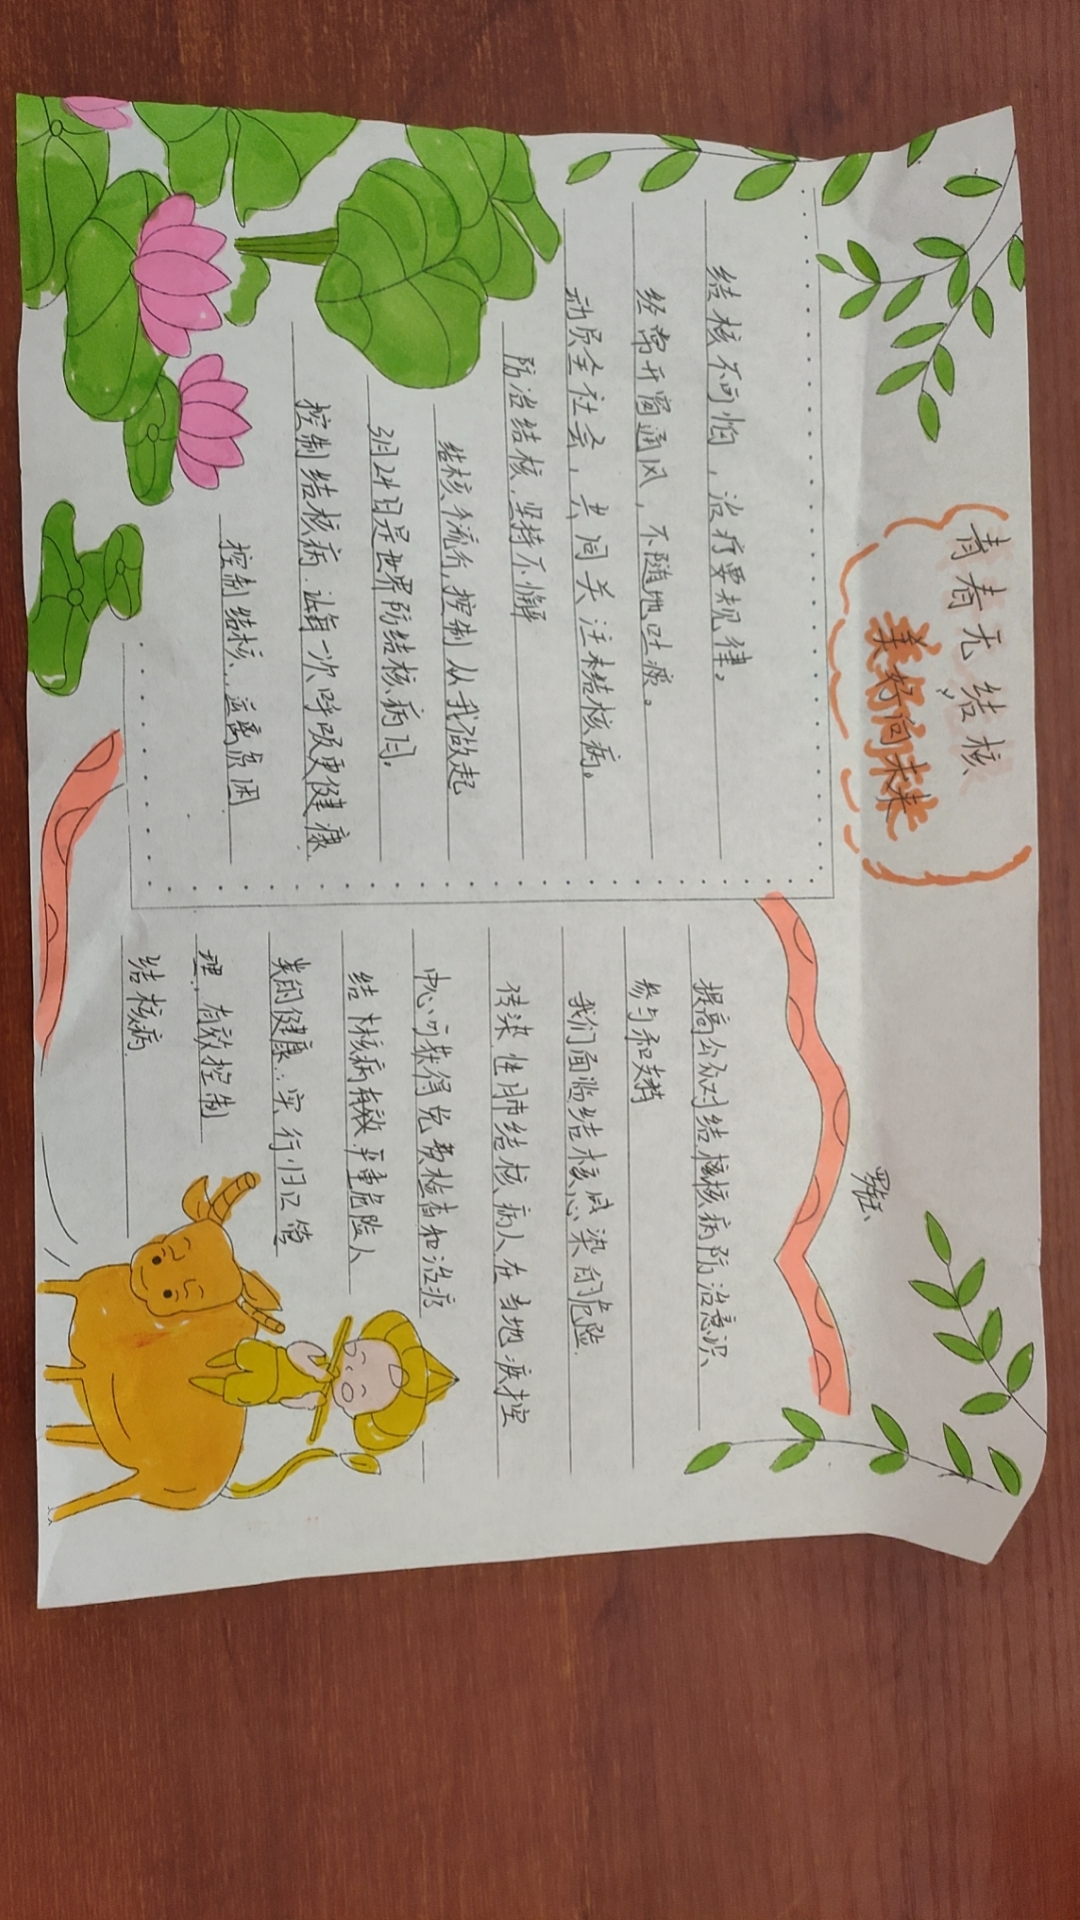 青春无结核
美好向未来
结核不可怕，治疗要规律。
经常开窗通风，不随地吐痰。
动员全社会，共同关注结核病。
防治结核，坚持不懈
结核乍流行，控制从我做起
3月24日是世界防结核病日。
控制结核病.让每一次呼吸更健康.
控制结核、远离贫困
提高公众对结核核病防治意识、
参与和支持
我们面临结核感染的危险.
传染性肺结核病人在当地疾控
中心可获得免费检查和治疗
结核病有效严重危险人
类的健康∴实行归口管
理∴有效控制
结核病.